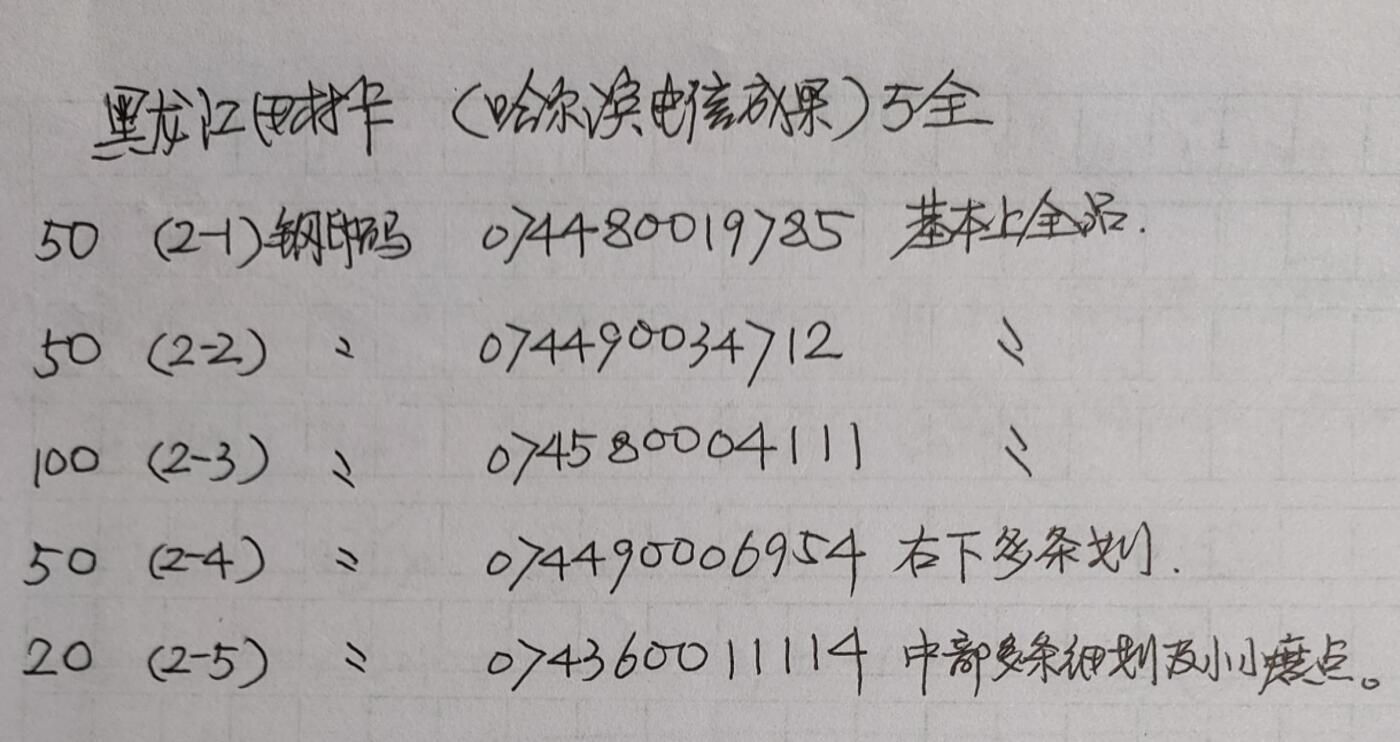 黑龙江田村卡（哈尔滨电信成果）5全
50 (2-1) 钢印码 074480019785 基本上全品.
50 (2-2) 〃 074490034712 〃
100 (2-3) 〃 074580004111 〃
50 (2-4) 〃 074490006954 右下多条划.
20 (2-5) 〃 074360011114 中部多条细划及小小点。